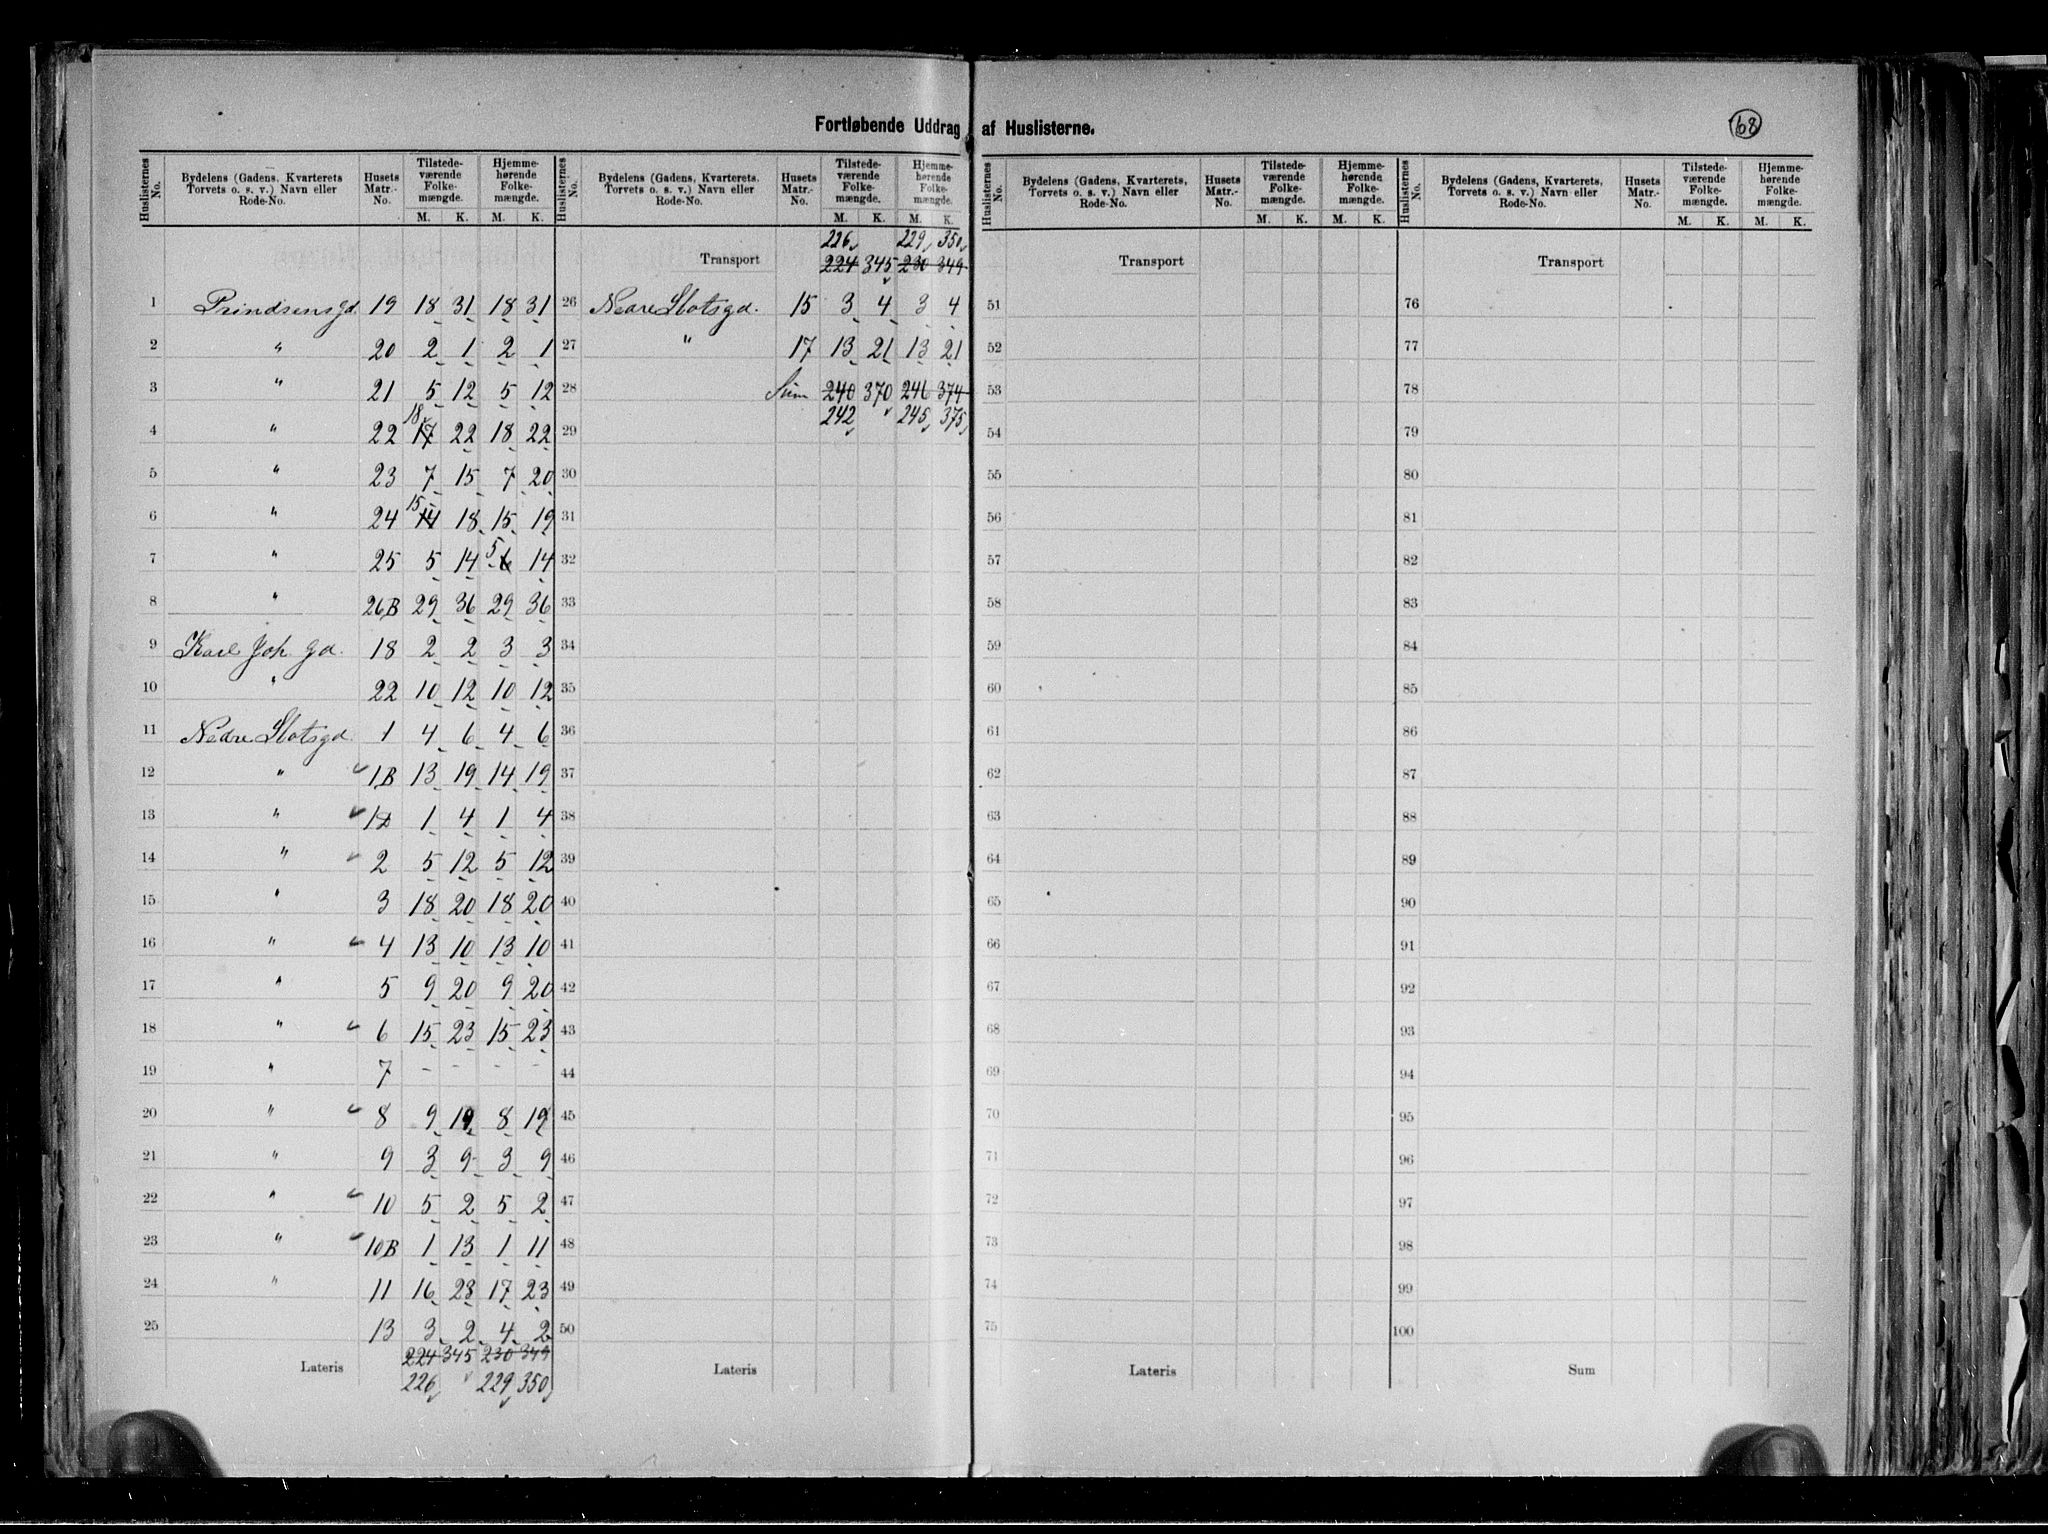 Fortløbende Uddrag af Huslisterne.
68
Huslisternes No. | Bydelens (Gadens, Kvarterets Torvets o. s. v.) Navn eller Rode-No. | Husets Matr.-No. | Tilstedeværende Folkemængde. M. K. | Hjemmehørende Folkemængde. M. K.
1 Prindsens gd. 19 18 31 18 31
2 " 20 2 1 2 1
3 " 21 5 12 5 12
4 " 22 17 18 22 18 22
5 " 23 7 15 7 20
6 " 24 14 15 18 15 19
7 " 25 5 14 6 5 14
8 " 26B 29 36 29 36
9 Karl Joh gd. 18 2 2 3 3
10 " 22 10 12 10 12
11 Nedre Slotsgd. 1 4 6 4 6
12 " 1B 13 19 14 19
13 " 1D 1 4 1 4
14 " 2 5 12 5 12
15 " 3 18 20 18 20
16 " 4 13 10 13 10
17 " 5 9 20 9 20
18 " 6 15 23 15 23
19 " 7 - - - -
20 " 8 9 19 8 19
21 " 9 3 9 3 9
22 " 10 5 2 5 2
23 " 10B 1 13 1 11
24 " 11 16 23 17 23
25 13 3 2 4 2
224 345 230 349
Lateris
226 229 350
Huslisternes No. | Bydelens (Gadens, Kvarterets, Torvets o. s. v.) Navn eller Rode-No. | Husets Matr.-No. | Tilstedeværende Folkemængde. M. K. | Hjemmehørende Folkemængde. M. K.
226 229 350
Transport 224 345 230 349
26 Nedre Slotsgd. 15 3 4 3 4
27 " 17 13 21 13 21
28 Sum 240 370 246 374
242 245 375
29
30
31
32
33
34
35
36
37
38
39
40
41
42
43
44
45
46
47
48
49
50
Lateris
Huslisternes No. | Bydelens (Gadens, Kvarterets, Torvets o. s. v.) Navn eller Rode-No. | Husets Matr.-No. | Tilstedeværende Folkemængde. M. K. | Hjemmehørende Folkemængde. M. K.
Transport
51
52
53
54
55
56
57
58
59
60
61
62
63
64
65
66
67
68
69
70
71
72
73
74
75
Lateris
Huslisternes No. | Bydelens (Gadens, Kvarterets, Torvets o. s. v.) Navn eller Rode-No. | Husets Matr.-No. | Tilstedeværende Folkemængde. M. K. | Hjemmehørende Folkemængde. M. K.
Transport
76
77
78
79
80
81
82
83
84
85
86
87
88
89
90
91
92
93
94
95
96
97
98
99
100
Sum